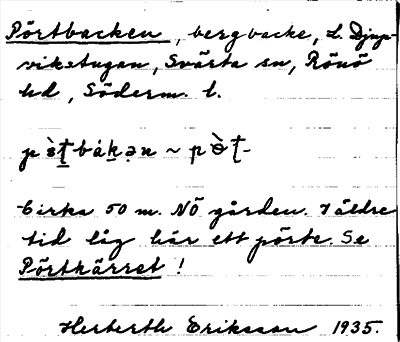 Pörtbacken, bergbacke, L. Djup-
vikstugan, Svärta sn, Rönö
hd, Söderm. l.
Cirka 50 m. NÖ gården. I äldre
tid låg här ett pörte. Se
Pörtkärret!
Herberth Eriksson 1935.